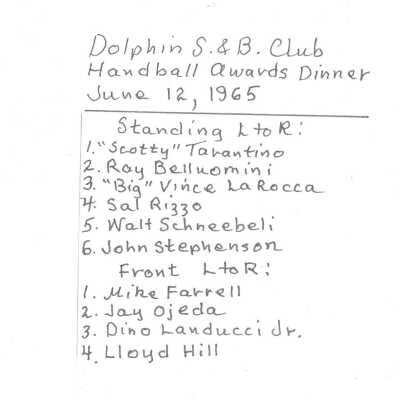 Dolphin S. & B. Club
Handball Awards Dinner
June 12, 1965
Standing L to R:
1. "Scotty" Tarantino
2. Roy Belluomini
3. "Big" Vince LaRocca
4. Sal Rizzo
5. Walt Schneebeli
6. John Stephenson
Front L to R:
1. Mike Farrell
2. Jay Ojeda
3. Dino Landucci Jr.
4. Lloyd Hill